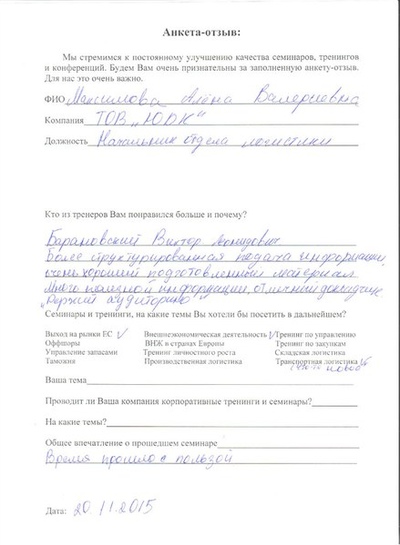 Анкета-отзыв:
Мы стремимся к постоянному улучшению качества семинаров, тренингов
и конференций. Будем Вам очень признательны за заполненную анкету-отзыв.
Для нас это очень важно.
ФИО Максимова Алёна Валериевна
Компания ТОВ "ЮДК"
Должность Начальник отдела логистики
Кто из тренеров Вам понравился больше и почему?
Барановский Виктор Леонидович
Более структурированная подача информации,
очень хороший подготовленный материал
Много полезной информации, отличный докладчик
"Держит аудиторию"
Семинары и тренинги, на какие темы Вы хотели бы посетить в дальнейшем?
Выход на рынки ЕС √ Внешнеэкономическая деятельность √ Тренинг по управлению
Оффшоры ВНЖ в странах Европы Тренинг по закупкам
Управление запасами Тренинг личностного роста Складская логистика
Таможня Производственная логистика Транспортная логистика √
что-то новое
Ваша тема
Проводит ли Ваша компания корпоративные тренинги и семинары?
На какие темы?
Общее впечатление о прошедшем семинаре
Время прошло с пользой
Дата: 20.11.2015